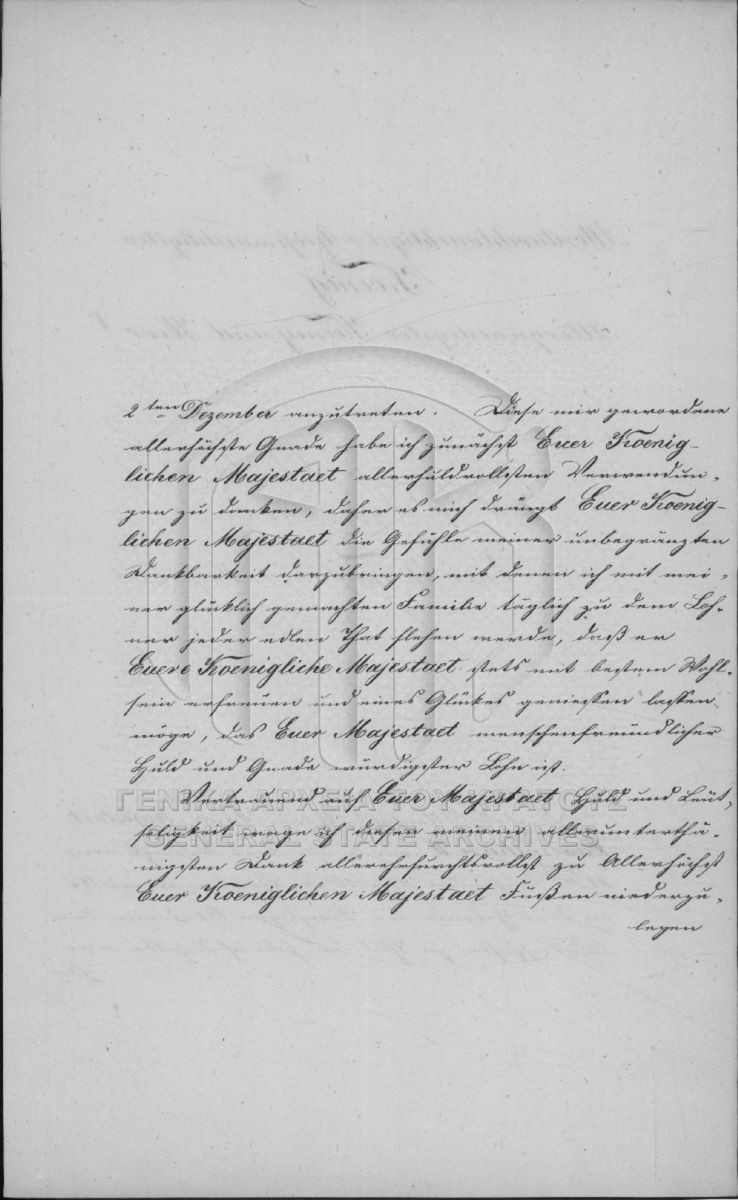 2ten Dezember anzutreten. Diese mir gewordene
allerhöchste Gnade habe ich zunächst Euer Koenig-
lichen Majestaet allerhuldvollsten Verwendun-
gen zu danken, daher es mich drängt Euer Koenig-
lichen Majestaet die Gefühle meiner unbegränzten
Dankbarkeit darzubringen, mit denen ich mit mei-
ner glücklich gemachten Familie täglich zu dem Loh-
ner jeder edlen That flehen werde, daß er
Euere Koenigliche Majestaet stets mit bestem Wohl-
sein erfreuen und eines Glückes geniessen lassen
möge, das Euer Majestaet menschenfreundlicher
Huld und Gnade würdigster Lohn ist.
Vertrauend auf Euer Majestaet Huld und Leut-
seligkeit wage ich diesen meinen allerunterthä-
nigsten Dank allerehrfurchtsvollst zu Allerhöchst
Euer Koeniglichen Majestaet Füßen niederzu-
legen
ΓΕΝΙΚΑ ΑΡΧΕΙΑ ΤΟΥ ΚΡΑΤΟΥΣ
GENERAL STATE ARCHIVES